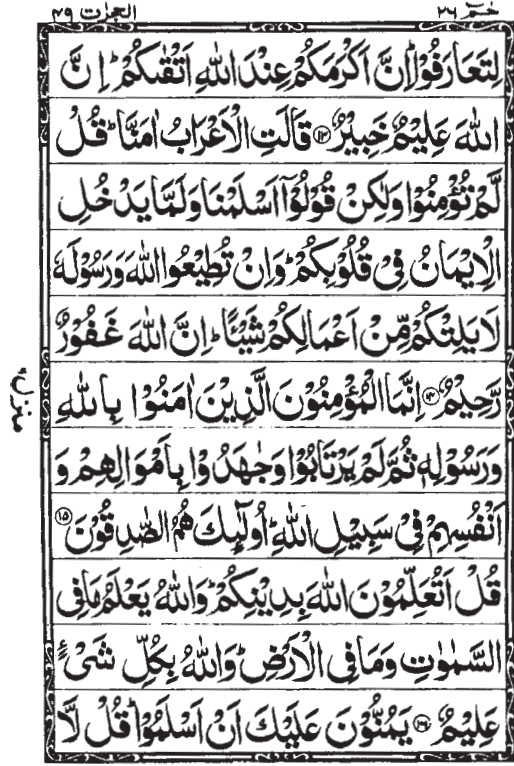 حٰمٓ ٢٦ الحجرٰت ٤٩
لِتَعَارَفُوْاؕ اِنَّ اَكْرَمَكُمْ عِنْدَ اللّٰهِ اَتْقٰىكُمْؕ اِنَّ
اللّٰهَ عَلِيْمٌ خَبِيْرٌ ﴿١٣﴾ قَالَتِ الْاَعْرَابُ اٰمَنَّاؕ قُلْ
لَّمْ تُؤْمِنُوْا وَلٰكِنْ قُوْلُوْۤا اَسْلَمْنَا وَلَمَّا يَدْخُلِ
الْاِيْمَانُ فِيْ قُلُوْبِكُمْؕ وَاِنْ تُطِيْعُوا اللّٰهَ وَرَسُوْلَهٗ
لَا يَلِتْكُمْ مِّنْ اَعْمَالِكُمْ شَيْـًٔاؕ اِنَّ اللّٰهَ غَفُوْرٌ
رَّحِيْمٌ ﴿١٤﴾ اِنَّمَا الْمُؤْمِنُوْنَ الَّذِيْنَ اٰمَنُوْا بِاللّٰهِ
وَرَسُوْلِهٖ ثُمَّ لَمْ يَرْتَابُوْا وَجٰهَدُوْا بِاَمْوَالِهِمْ وَ
اَنْفُسِهِمْ فِيْ سَبِيْلِ اللّٰهِؕ اُولٰٓئِكَ هُمُ الصّٰدِقُوْنَ ﴿١٥﴾
قُلْ اَتُعَلِّمُوْنَ اللّٰهَ بِدِيْنِكُمْؕ وَاللّٰهُ يَعْلَمُ مَا فِي
السَّمٰوٰتِ وَمَا فِي الْاَرْضِؕ وَاللّٰهُ بِكُلِّ شَيْءٍ
عَلِيْمٌ ﴿١٦﴾ يَمُنُّوْنَ عَلَيْكَ اَنْ اَسْلَمُوْاؕ قُلْ لَّا
منزل ٦